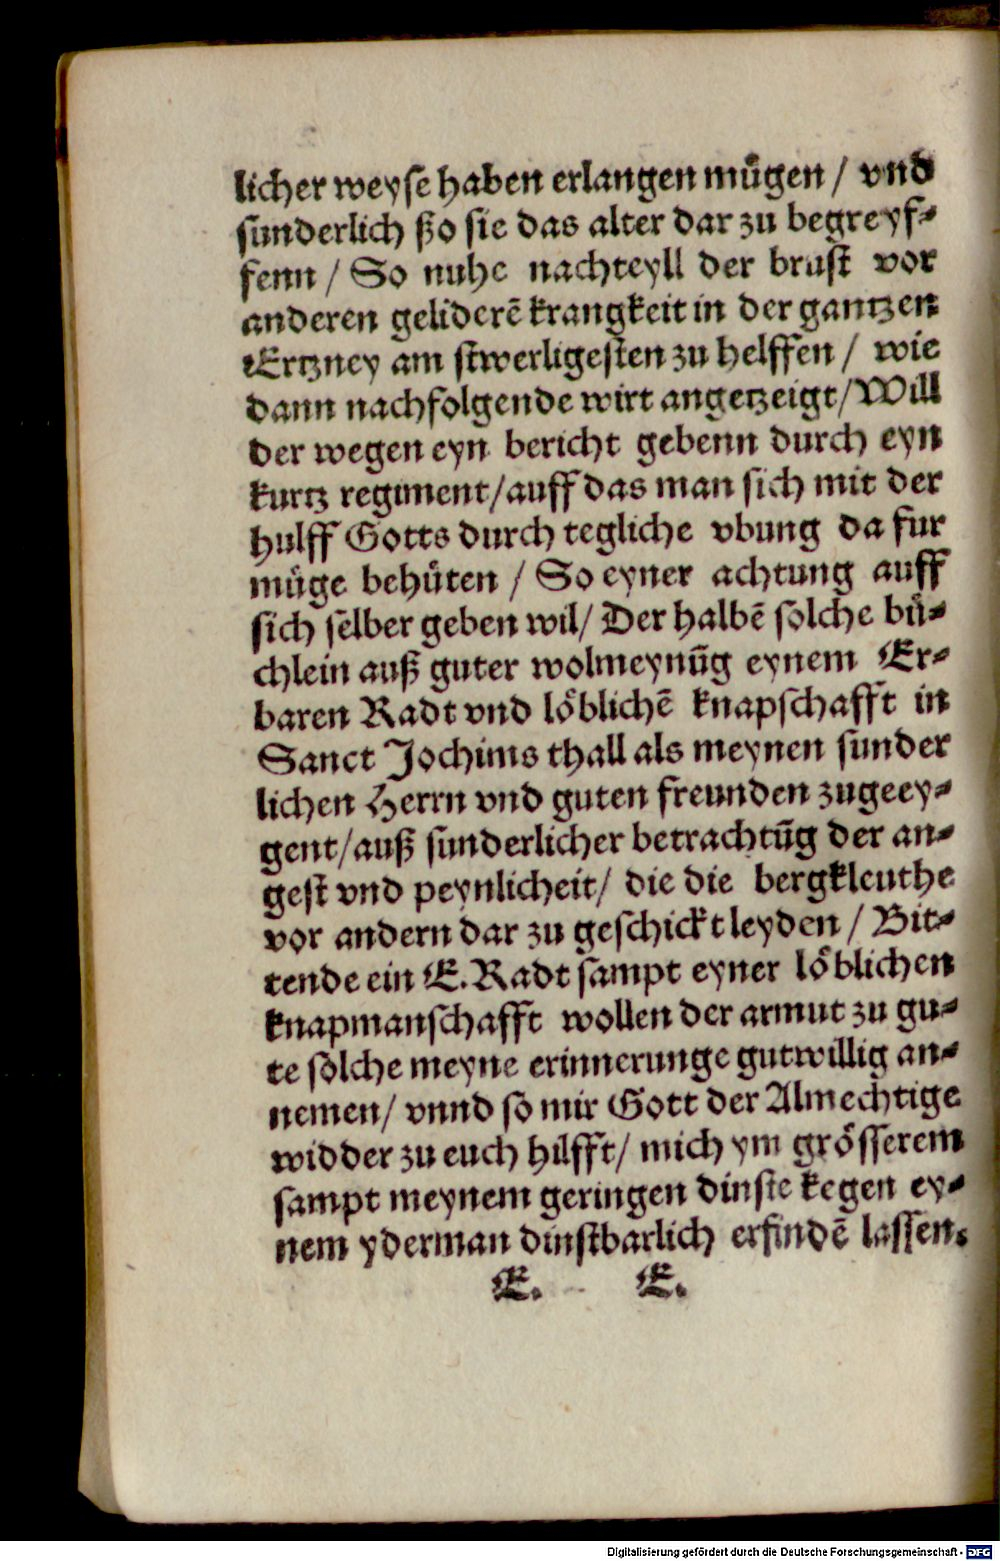 licher weyse haben erlangen mügen / vnd
sunderlich ßo sie das alter dar zu begreyf⸗
fenn / So nuhe nachteyll der brust vor
anderen geliderẽ krangkeit in der gantzen
Ertzney am stwerligesten zu helffen / wie
dann nachfolgende wirt angetzeigt / Will
der wegen eyn bericht gebenn durch eyn
kurtz regiment / auff das man sich mit der
hulff Gotts durch tegliche vbung da fur
müge behüten / So eyner achtung auff
sich selber geben wil / Der halbẽ solche bü⸗
chlein auß guter wolmeynũg eynem Er⸗
baren Radt vnd löblichẽ knapschafft in
Sanct Jochims thall als meynen sunder
lichen Herrn vnd guten freunden zugeey⸗
gent / auß sunderlicher betrachtũg der an⸗
gest vnd peynlicheit / die die bergkleuthe
vor andern dar zu geschickt leyden / Bit⸗
tende ein E. Radt sampt eyner löblichen
knapmanschafft wollen der armut zu gu⸗
te solche meyne erinnerunge gutwillig an⸗
nemen / vnnd so mir Gott der Almechtige
widder zu euch hilfft / mich ym grösserem
sampt meynem geringen dinste kegen ey⸗
nem yderman dinstbarlich erfindẽ lassen.
E. E.
Digitalisierung gefördert durch die Deutsche Forschungsgemeinschaft - DFG